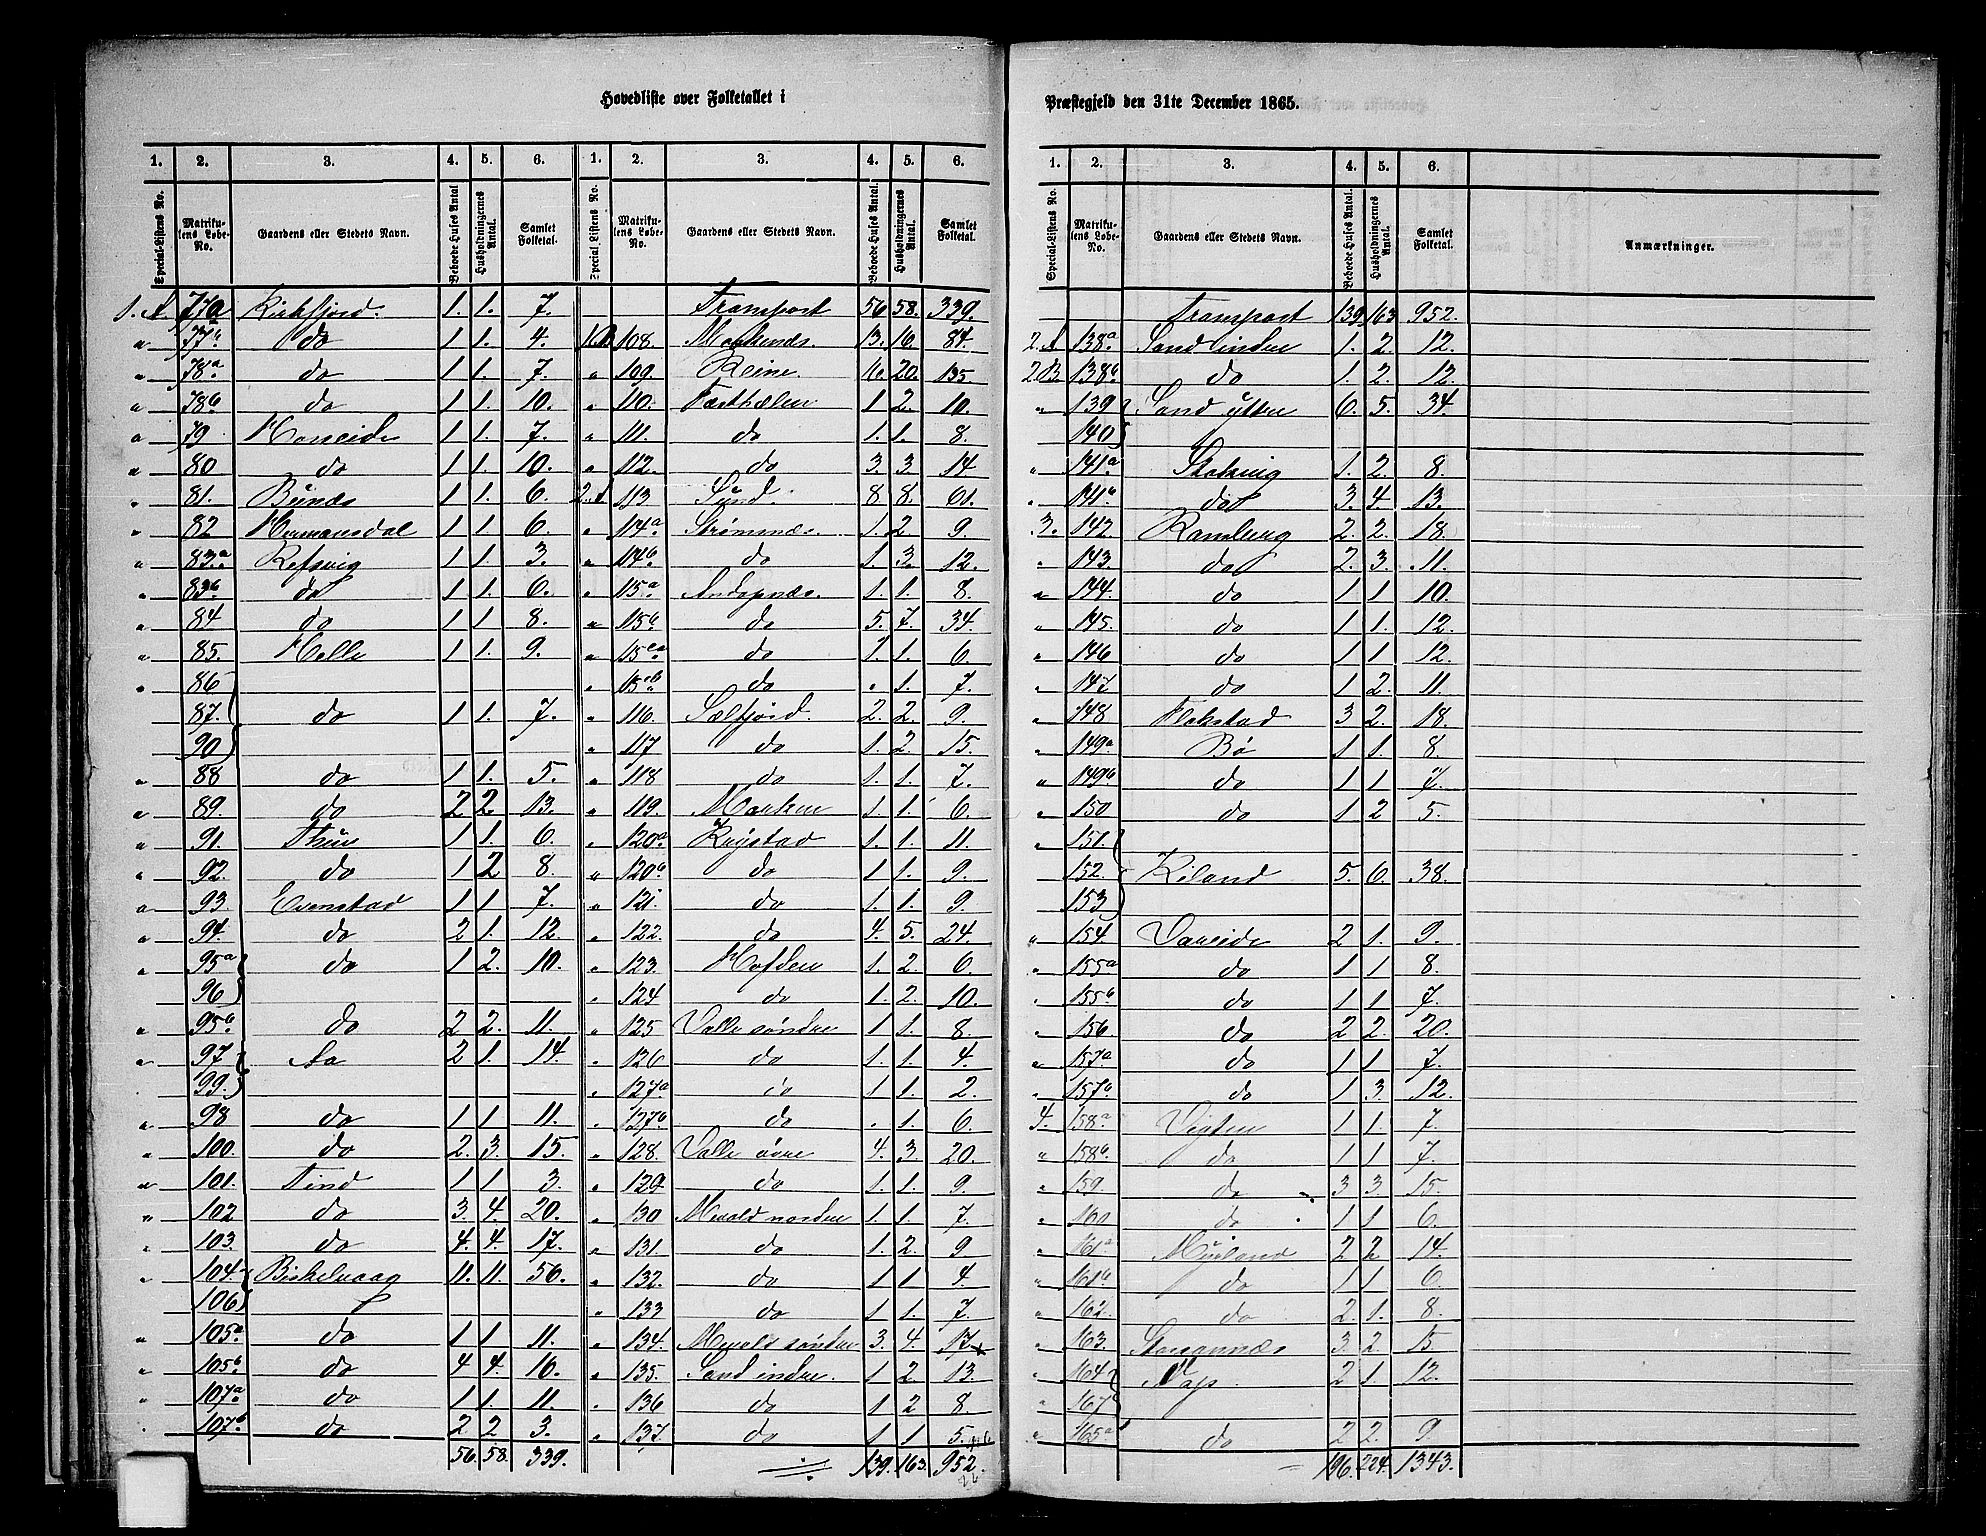 Hovedliste over Folketallet i
1. 2. 3. 4. 5. 6. 1. 2. 3. 4. 5. 6.
Special-Listens No. Matrikulens Løbe-No. Gaardens eller Stedets Navn. Beboede Huses Antal. Husholdningernes Antal. Samlet Folketal. Special Listens No. Matrikulens Løbe-No. Gaardens eller Stedets Navn. Beboede Huses Antal. Husholdningernes Antal. Samlet Folketal.
1. A. 77a Kirkfjord. 1. 1. 7. Transport 56 58. 339.
" 77b do 1 1. 4. 1.B 108. Moskenæs. 13. 16. 84
" 78a do 1 1. 7. " 109. Reine. 16. 20. 135.
" 78b do 1 1. 10. " 110. 1 2. 10.
" 79 1 1. 7. " 111. do 1. 1. 8.
" 80 do 1 1. 10. " 112. do 3. 3 14
" 81. Bunæs 1 1. 6. 2.A 113 Sund. 8 8. 61.
" 82 Hermansdal 1 1. 6. " 114a Strømnæs. 1. 2. 9.
" 83a Refsvig 1 1. 3. " 114b do 1. 3. 12.
" 83b do 1 1. 6. " 115a Andopnæs. 1. 1. 8.
" 84 do 1 1 8. " 115b do 5. 7. 34.
" 85. Helle 1 1. 9. " do 1. 1. 6.
" 86 " do " 1. 7.
87. do 1 1. 7. " 116. Sælfjord. 2. 2. 9.
90 " 117 do 1. 2. 15.
" 88 do 1 1. 5. " 118. do 1. 1. 7.
" 89. do 2 2. 13. " 119. Marken 1. 1. 6.
" 91. Thun 1 1. 6. " 120a Krystad 1. 1. 11.
" 92. do 1 2 8. " 120b do 1 1. 9.
" 93 Evenstad 1 1 7. " 121. do 1. 1. 9.
" 94. do 2 1. 12. " 122. do 4. 5. 24.
" 95a do 1 2. 10. " 123. Hofden 1. 2. 6.
96 " 124 do 1. 2. 10.
" 95b do 2 2. 11. " 125 Volle søndre 1 1. 8.
" 97 Aa 2 1. 14. " 126 do 1. 1. 4.
99. " 127a do 1 1. 2.
" 98 do 1 1 11. " 127b do " 1. 6.
" 100. do 2. 3. 15. " 128. Volle øvre 4. 3. 20.
" 101. Tind 1 1 3. " 129 do 1. 1. 9.
" 102 do 3. 4. 20. " 130 Mevold nordre 1. 1. 7.
" 103. do 4. 4. 17. " 131. do 1. 2. 9
" 104. 11. 11. 56. " 132. do 1 1. 4.
106 " 133 do 1 1. 7.
" 105a do 1 1 11. " 134. Mevold søndre 3. 4. 17
" 105b do 4 4. 16. " 135. Sand indre. 1 2. 13.
" 107a do 1 1. 11. " 136 do 1 2 8.
" 107b do 2 2 3. " 137. do 1 1 5.
56. 58. 339. 139. 163. 952.
Præstegjeld den 31te December 1865.
1. 2. 3. 4. 5. 6.
Special-Listens No. Matrikulens Løbe-No. Gaardens eller Stedets Navn. Beboede Huses Antal. Husholdningernes Antal. Samlet Folketal. Anmærkninger.
Transport 139 163 952.
2.A 138a Sand indre 1. 2. 12.
2.B. 138b do 1. 2. 12.
" 139 Sand yttre 6. 5. 34.
140
" 141a Skelvig 1. 2. 8.
" 141b do 3. 4. 13.
3. 142. Ramberg 2. 2. 18.
" 143. do 2. 3. 11.
" 144. do 1 1 10.
" 145. do 1 1. 12.
" 146 do 1 1 12.
" 147 do 1 2. 11.
" 148 Flakstad 3 2. 18.
" 149a Bø 1 1. 8.
" 149b do 1 1 7.
" 150 do 1 2 5.
" 151.
152. Kiland 5. 6. 38.
153
" 154. Vareide 2 1. 9.
" 155a do 1 1 8.
" 155b do 1 1 7.
" 156 do 2 2. 20.
" 157a do 1 1 7.
" 157b do 1 3. 12.
4. 158a Vigten 1 1. 7.
" 158b do 1 1 7.
" 159. do 3 3. 15.
" do 1 1 6.
" 161a Myrland 2 2 14.
" 161b do 1 1 6
" 162. do 2. 1. 8.
" 163. 3. 2. 15
" 164 Nap. 2 1. 12.
" 167
" 165a do 2 2. 9
196. 224. 1343.